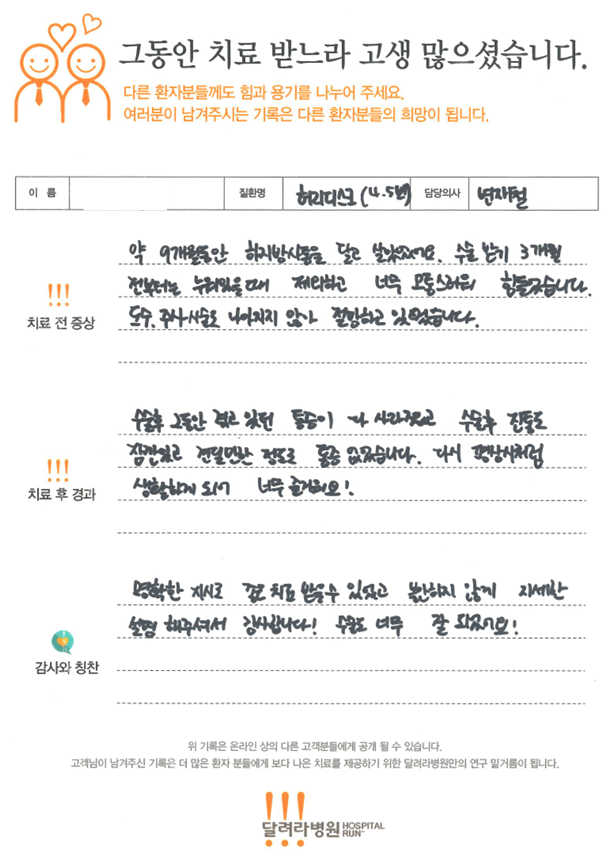 그동안 치료 받느라 고생 많으셨습니다.
다른 환자분들께도 힘과 용기를 나누어 주세요.
여러분이 남겨주시는 기록은 다른 환자분들의 희망이 됩니다.
이 름 질환명 허리디스크 (4.5번) 담당의사
약 9개월동안 하지방사통을 달고 살았었어요. 수술 받기 3개월
전부터는 누워있을때 제외하고 너무 고통스러워 힘들었습니다.
도수, 주사시술도 나아지지 않아 절망하고 있었습니다.
!!!
치료 전 증상
수술후 그동안 겪고 있던 통증이 다 사라졌고 수술후 진통도
잠깐있고 견딜만한 정도로 통증 없었습니다. 다시 평상시처럼
생활하게 되어 너무 즐거워요!
!!!
치료 후 경과
명확한 지시로 검보 치료 받을수 있었고 불안하지 않게 자세한
설명 해주셔서 감사합니다! 수술도 너무 잘 되었어요!
감사와 칭찬
위 기록은 온라인 상의 다른 고객분들에게 공개 될 수 있습니다.
고객님이 남겨주신 기록은 더 많은 환자 분들에게 보다 나은 치료를 제공하기 위한 달려라병원만의 연구 밑거름이 됩니다.
!!!
달려라병원 HOSPITAL RUN